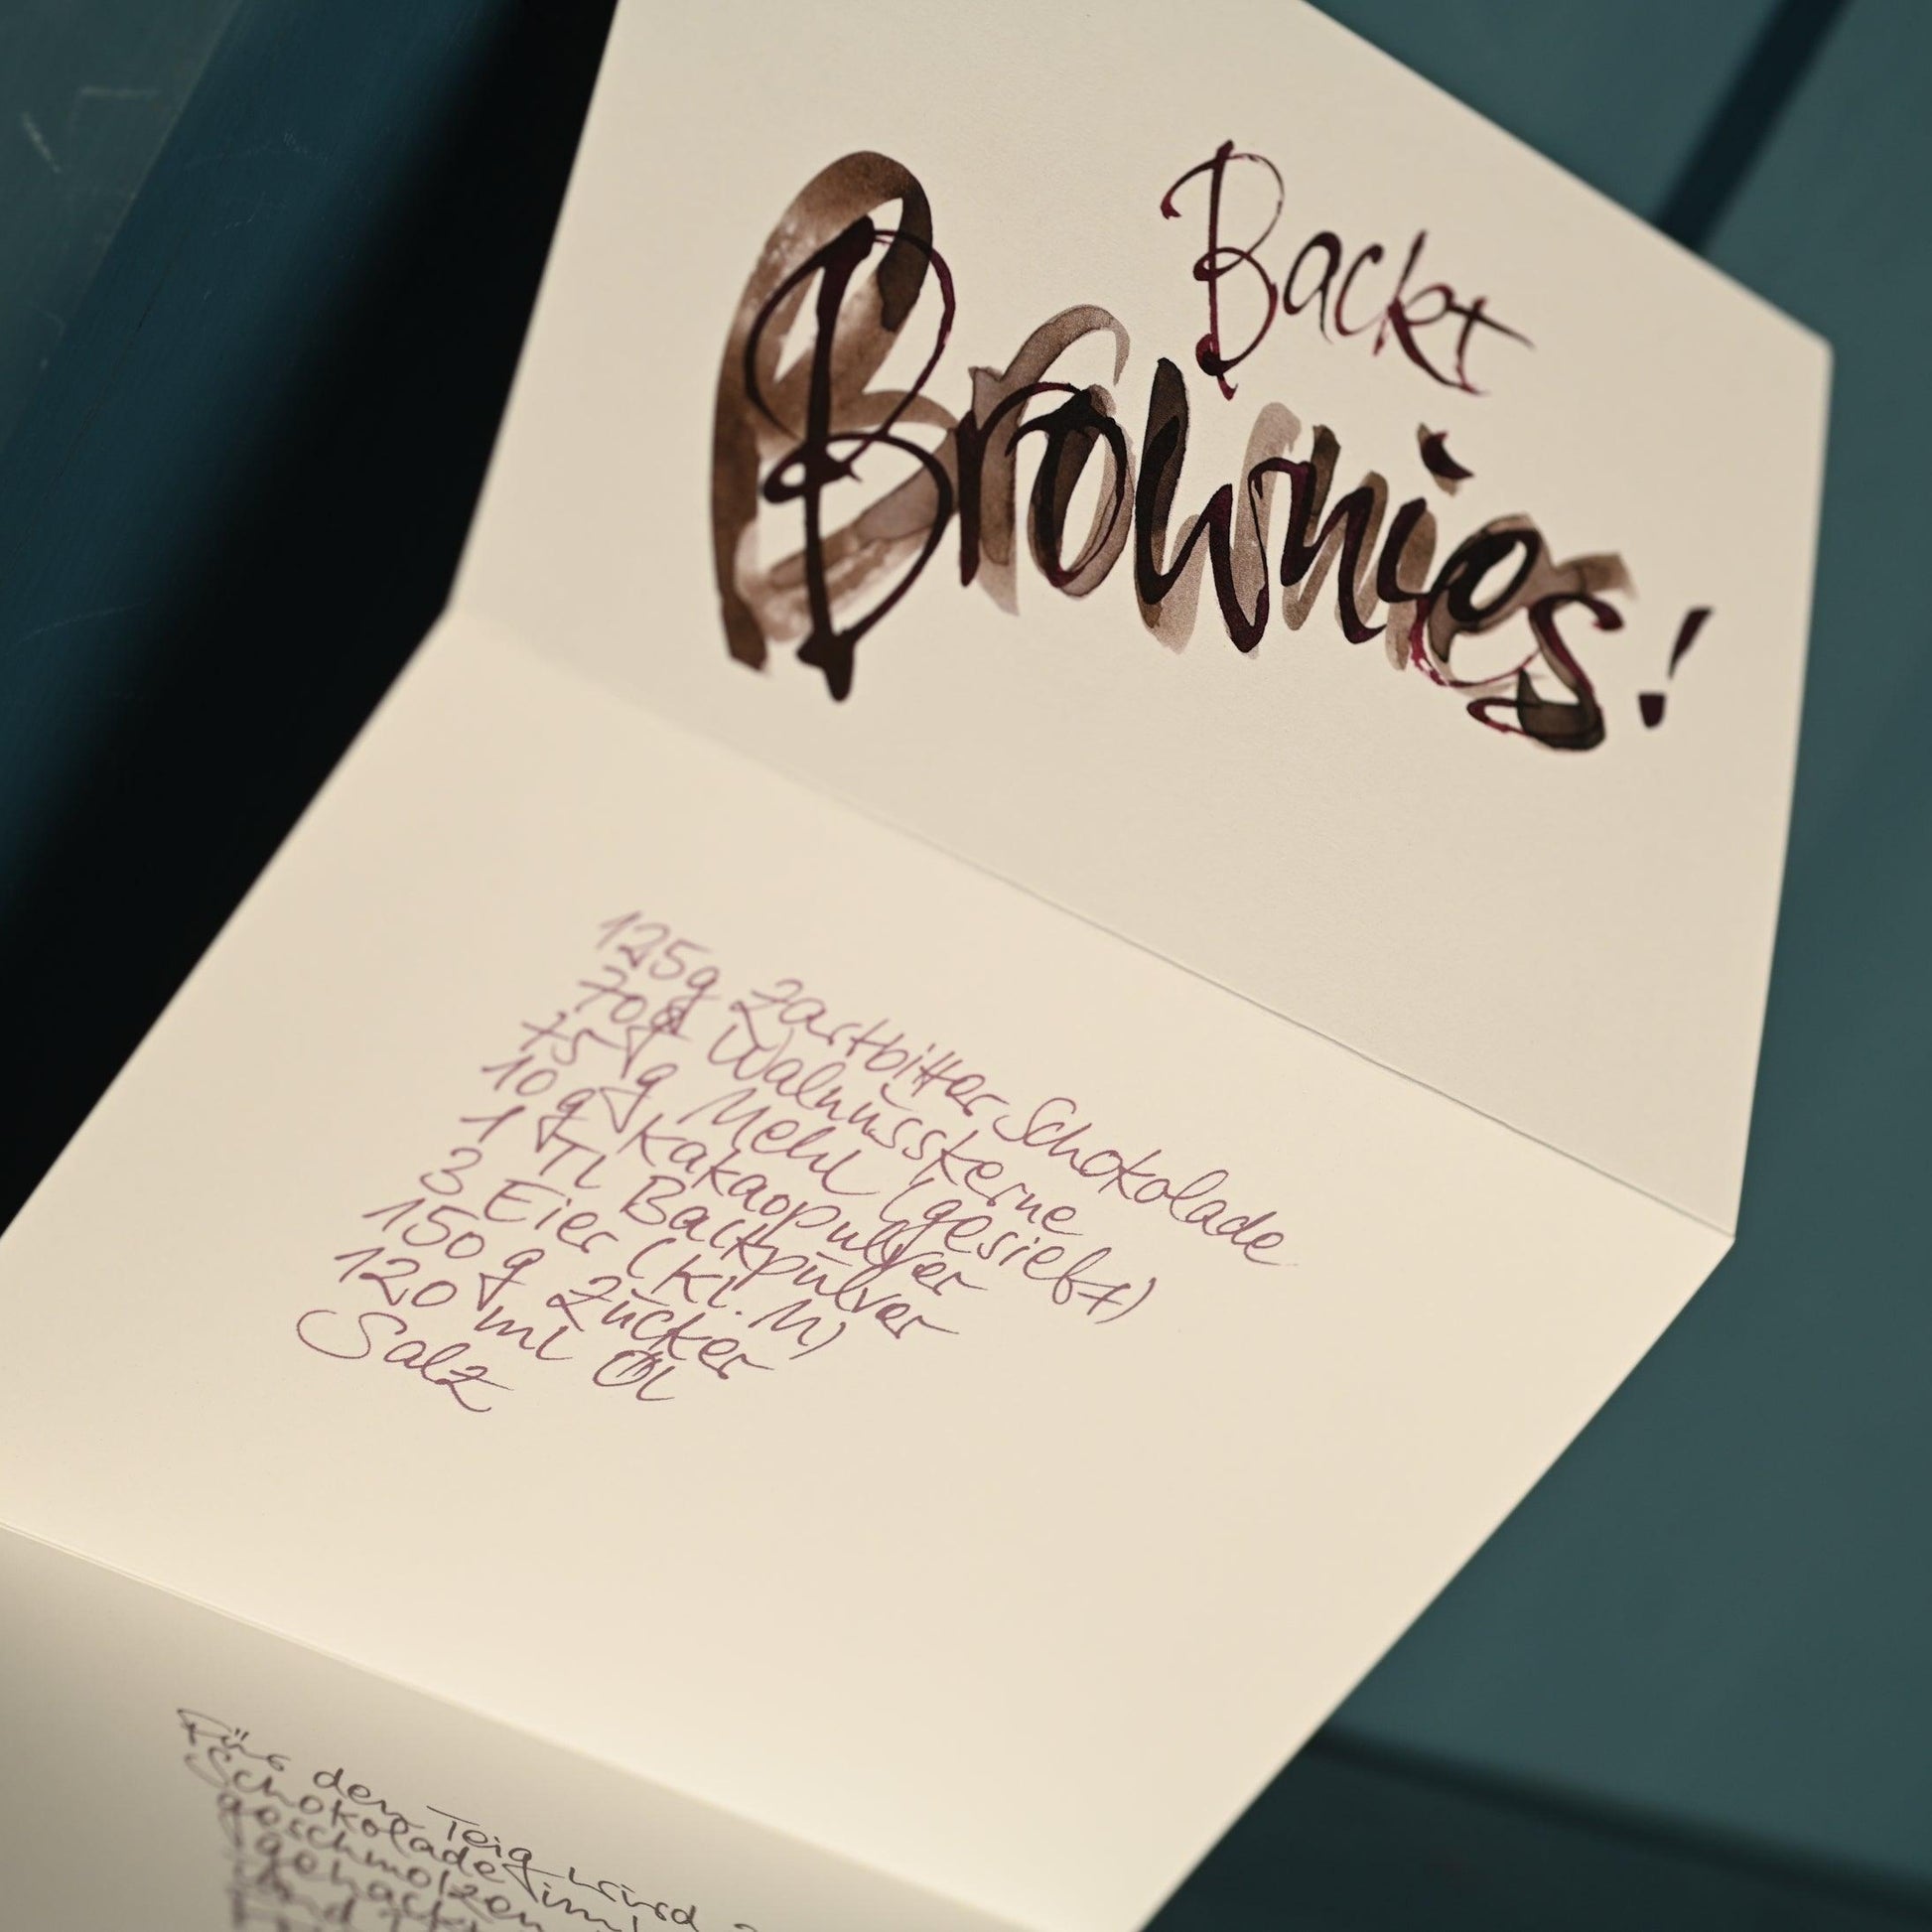 Backt
Brownies!
125g Zartbitter Schokolade
70g Walnusskerne
75 g Mehl (gesiebt)
10 g Kakaopulver
1 TL Backpulver
3 Eier (Kl. M)
150 g Zucker
120 ml Öl
Salz
Für den Teig wird
Schokolade im
geschmolzen
gehackt
und